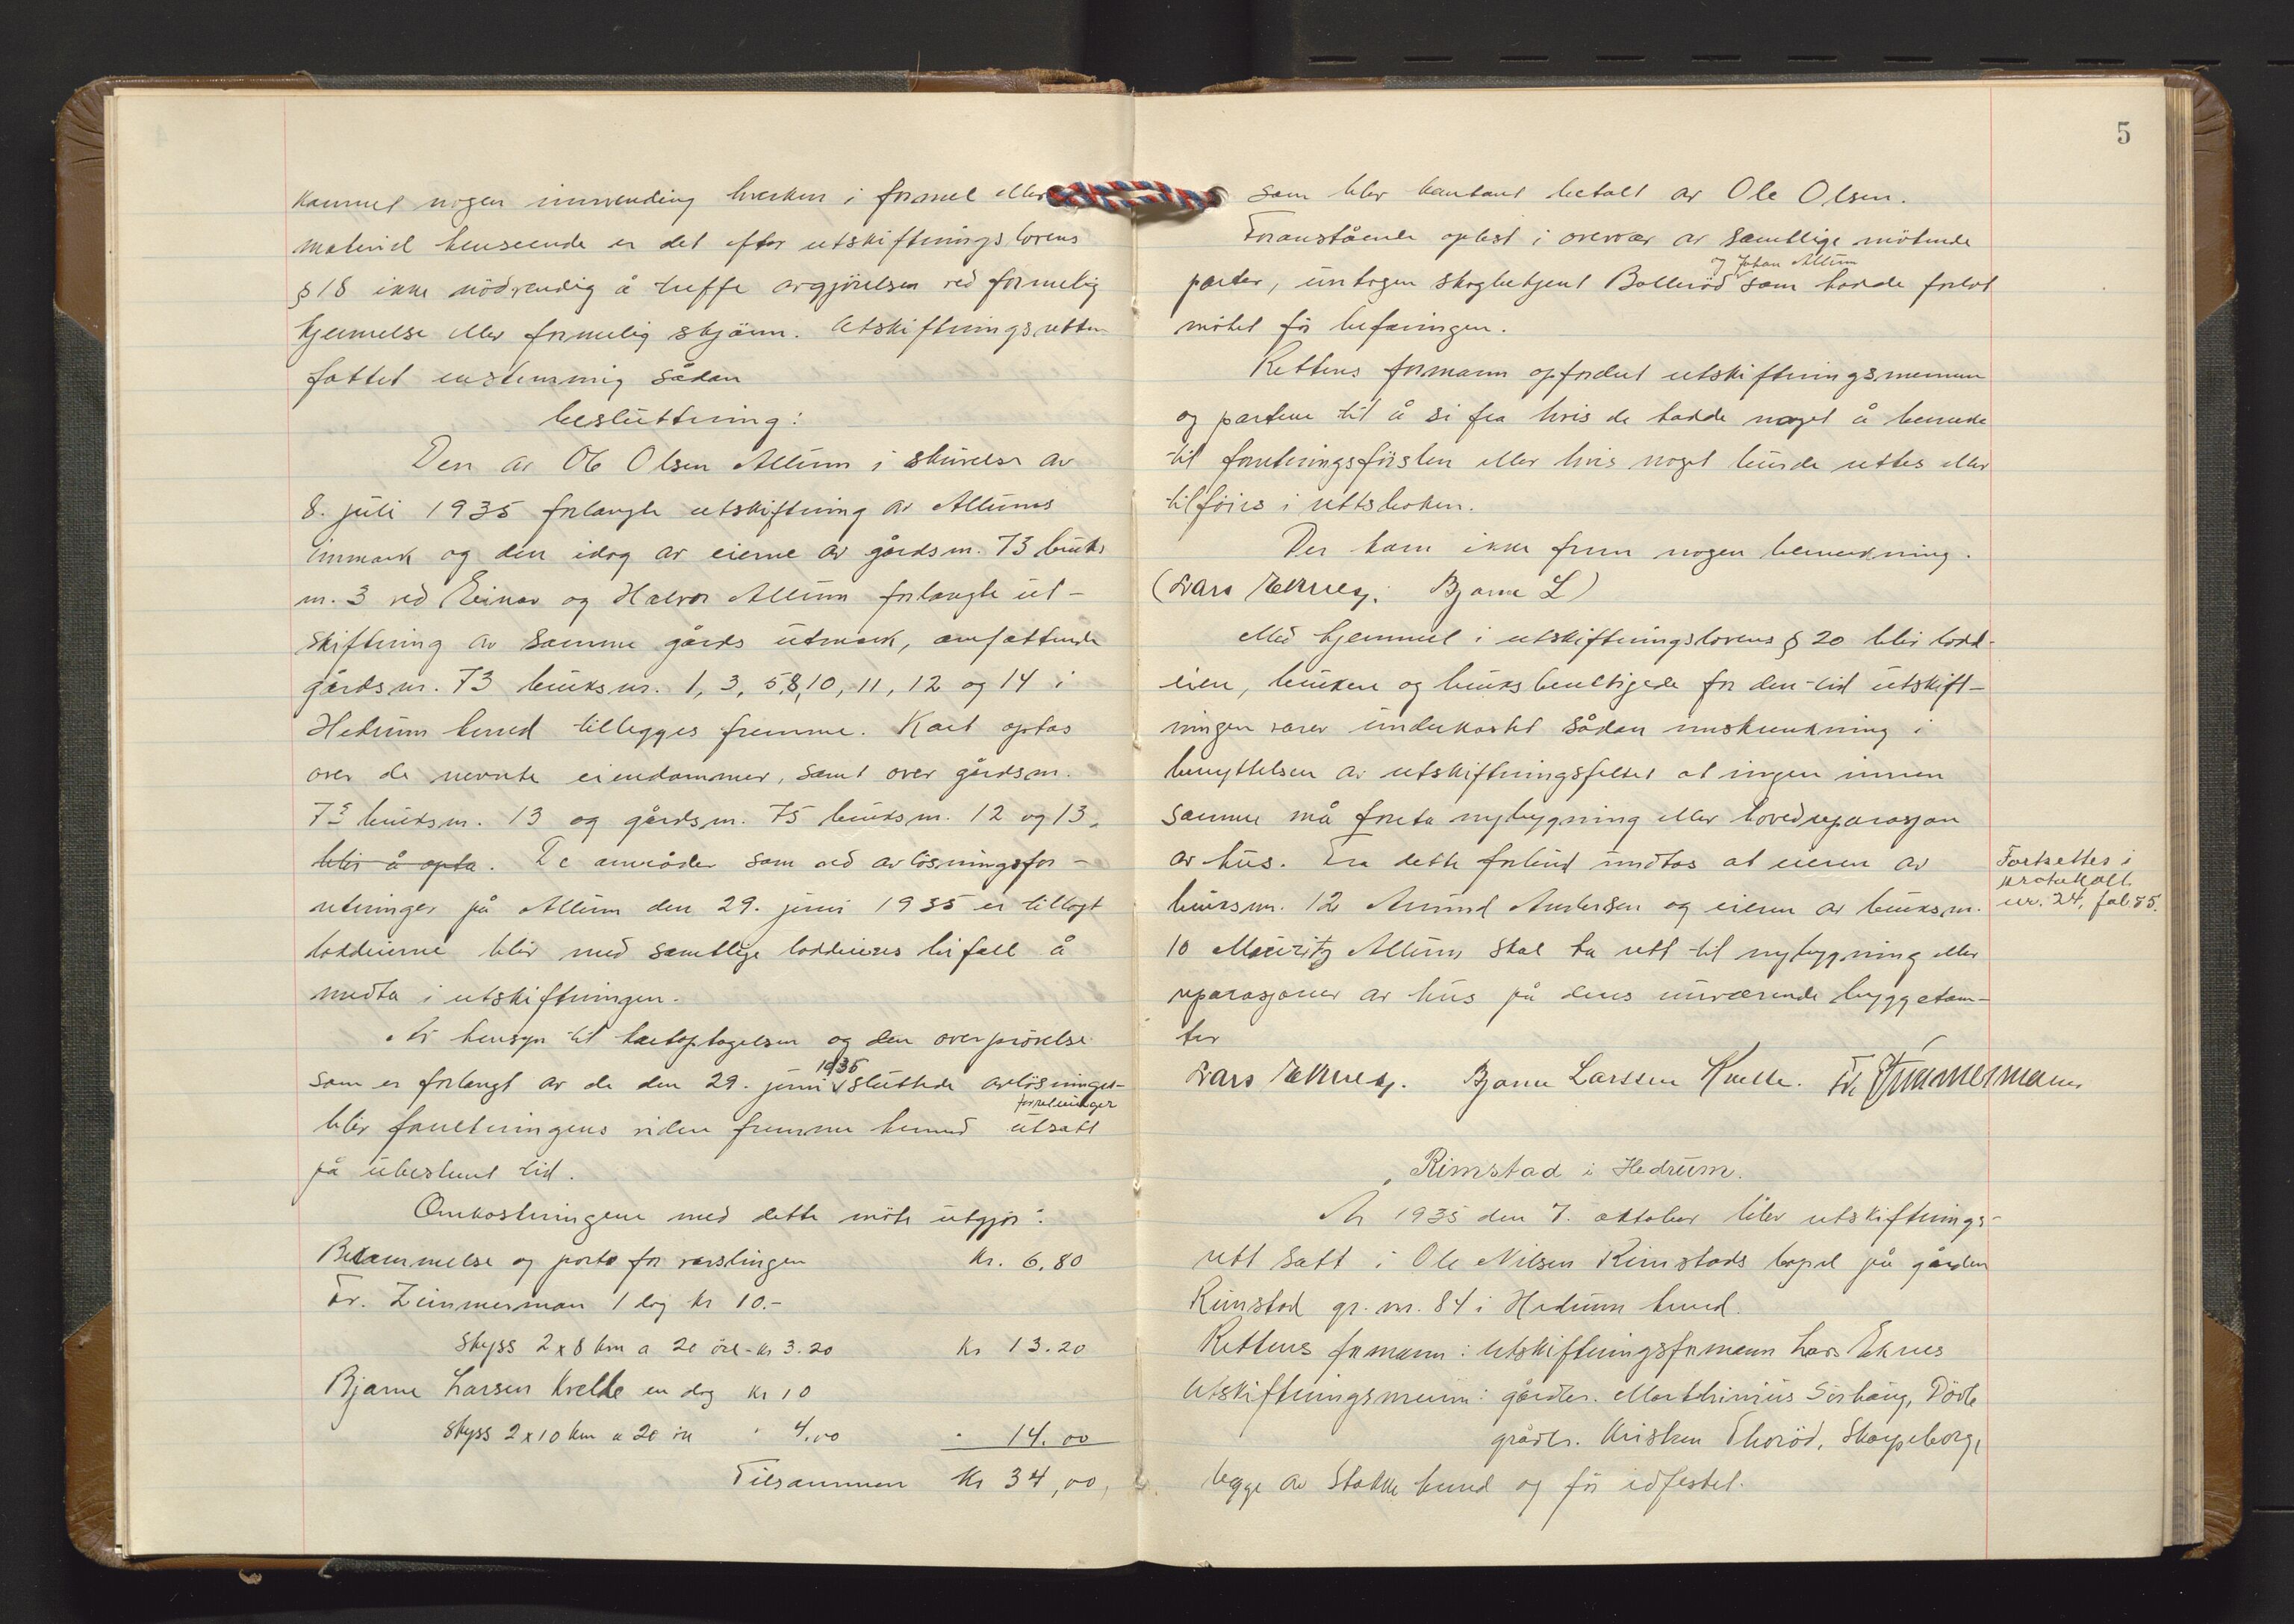 kommet nogen innvending hverken i formel eller
materiel henseende er det efter utskiftningslovens
§ 18 ikke nödvendig å treffe avgjörelsen ved formelig
kjennelse eller formelig skjönn. Utskiftningsretten
fattet enstemmig sådan
beslutning:
Den av Ole Olsen Allum i skrivelse av
8. juli 1935 forlangte utskiftning av Allums
innmark og den idag av eierne av gårdsnr. 73 bruks
nr. 3 ved Einar og Halvor Allum forlangte ut-
skiftning av samme gårds utmark, omfattende
gårdsnr. 73 bruksnr. 1, 3, 5, 8, 10, 11, 12 og 14 i
Hedrum herred tillegges fremme. Kart optas
over de nevnte eiendommer, samt over gårdsnr.
73 bruksnr. 13 og gårdsnr. 75 bruksnr. 12 og 13.
blir å opta. De områder som ved avlösningsfor-
retninger på Allum den 29. juni 1935 er tillagt
loddeierne blir med samtlige loddeieres bifall å
medta i utskiftningen.
Av hensyn til kartoptagelsen og den overprövelse
som er forlangt av de den 29. juni 1935 sluttede avlösnings-
forretninger
blir forretningens videre fremme herved utsatt
på ubestemt tid.
Omkostningene med dette möte utgjör:
Berammelse og porto for varslingen kr. 6.80
Fr. Zimmerman 1 dag kr 10.-
Skyss 2 x 8 km a 20 öre - kr 3.20 kr 13.20
Bjarne Larsen Kvelde en dag kr 10
Skyss 2 x 10 km a 20 öre " 4,00 " 14.00
Tilsammen kr 34,00,
5
som blev kontant betalt av Ole Olsen.
Foranstående oplest i overvær av samtlige mötende
og Johan Allum
parter, untagen skogbetjent Bollerød som hadde forlat
mötet för befaringen.
Rettens formann opfordret utskiftningsmennene
og partene til å si fra hvis de hadde noget å bemerke
til forretningsförslen eller hvis noget burde rettes eller
tilföies i rettsboken.
Der kom ikke frem nogen bemerkning.
(Lars Eknes. Bjarne L)
Med hjemmel i utskiftningslovens § 20 blir lodd-
eier, bruker og bruksberettigede for den tid utskift-
ningen varer underkastet sådan innskrenkning i
benyttelsen av utskiftningsfeltet at ingen innen
samme må foreta nybygning eller hovedreparasjon
av hus. Fra dette forbud undtas at eieren av
bruksnr. 12 Amund Andersen og eieren av bruksnr.
10 Mauritz Allum skal ha rett til nybygning eller
reparasjoner av hus på deres nuværende byggetom-
ter
Fortsettes i
protokoll
nr. 24, fol. 85.
Lars Eknes. Bjarne Larssen Kvelde. Fr. Zimmermann
Rimstad i Hedrum.
År 1935 den 7. oktober blev utskiftnings-
rett satt i Ole Nilsen Rimstads bopel på gården
Rimstad gr. nr. 84 i Hedrum herred.
Rettens formann: Utskiftningsformann Lars Eknes
Utskiftningsmenn: gårdbr. Marthinius Sörhaug, Dövle
gårdbr. Kristian Thoröd, Skarpeborg,
begge av Stokke herred og för edfestet.